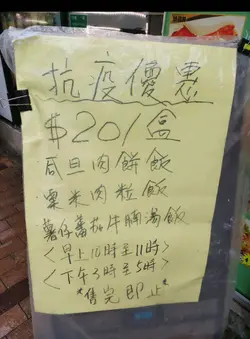 抗疫優惠
$20/盒
咸旦肉餅飯
粟米肉粒飯
薯仔蕃茄牛腩湯飯
<早上10時至11時>
<下午3時至5時>
*售完即止*